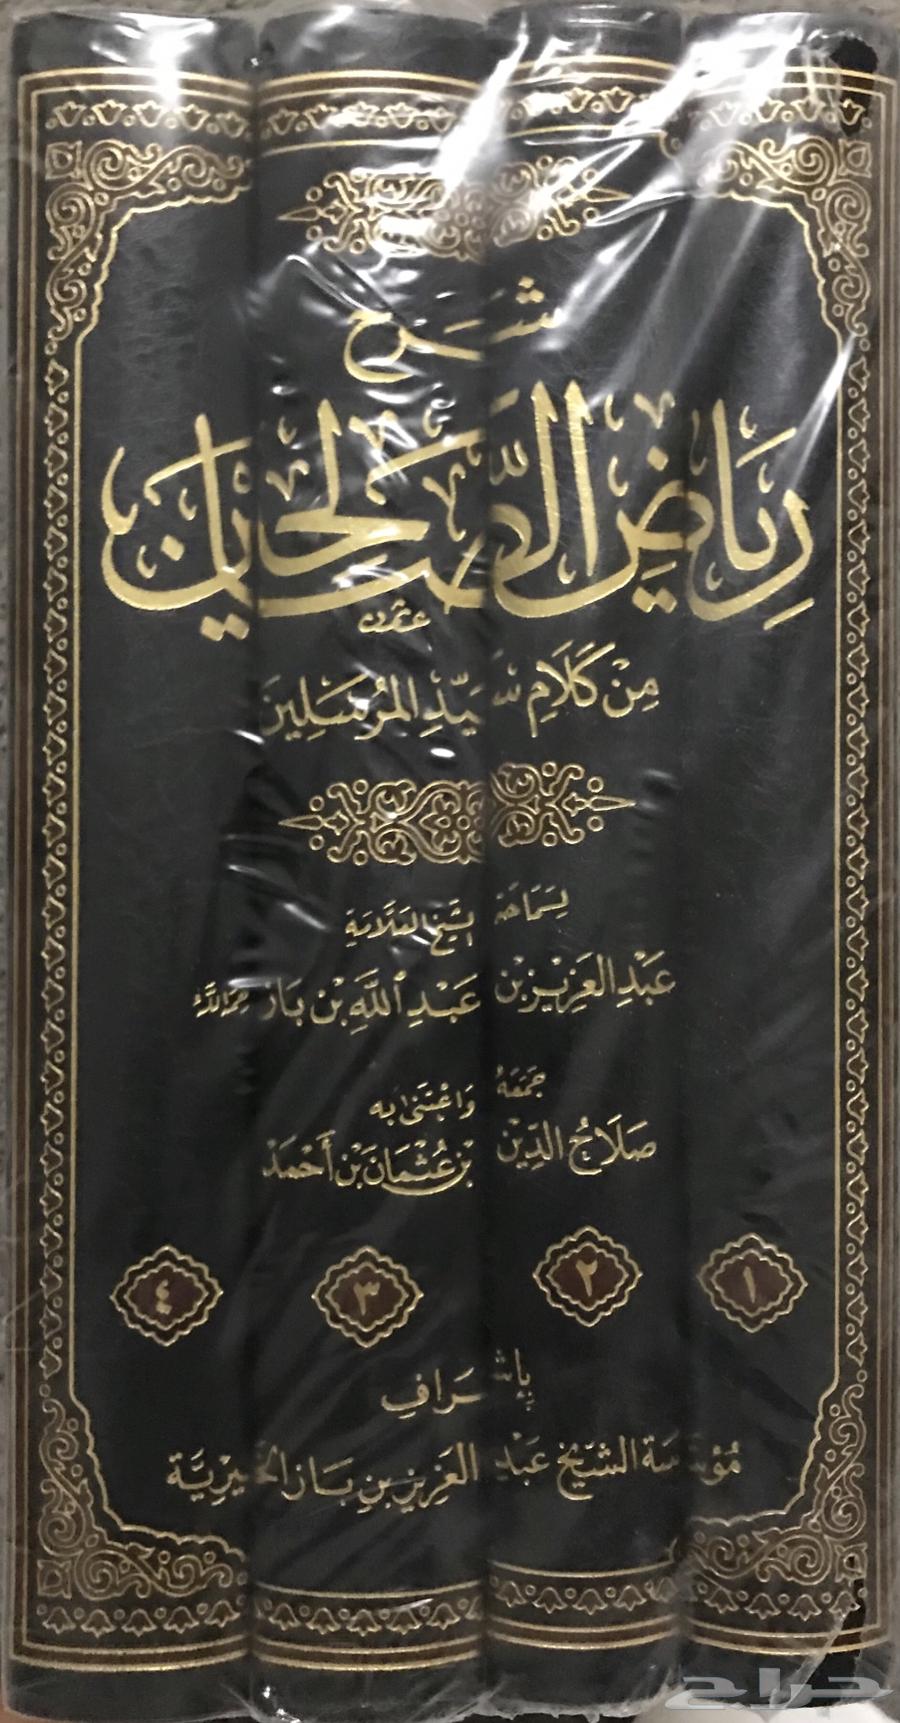 شَرح
رِيَاضِ الصَّالِحِين
مِنْ كَلَامِ سَيِّدِ المُرسَلِينَ
لِسَمَاحَة الشَّيخ العَلَّامَة
عَبْدِ العَزِيزِ بْنِ عَبْدِ اللَّهِ بْنِ بَاز رَحِمَهُ اللَّهُ
جَمَعَهُ وَاعْتَنَى بِهِ
صَلَاحُ الدِّين بْن عُثْمَان بْن أَحْمَد
١ ٢ ٣ ٤
بِإِشْرَافِ
مُؤَسَّسَة الشَّيْخ عَبْد العَزِيزِ بنِ بَاز الخَيْرِيَّة
حراج